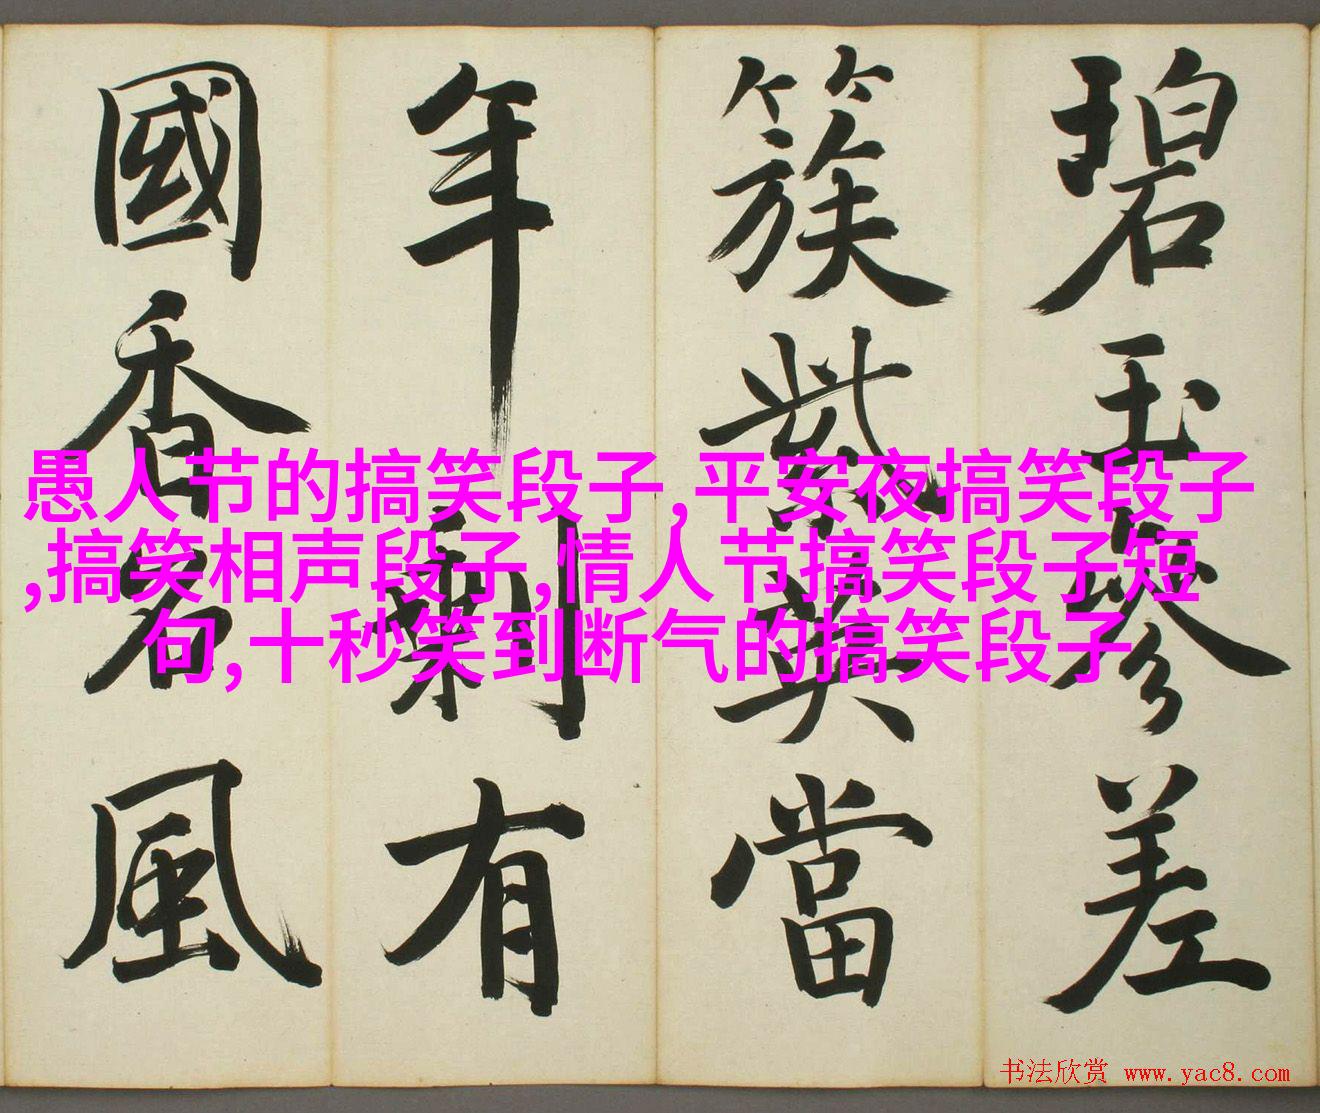 碧玉參差
簇紫英當
年剩有
國香名風
愚人节的搞笑段子,平安夜搞笑段子
,搞笑相声段子,情人节搞笑段子短
句,十秒笑到断气的搞笑段子
书法欣赏 www.yac8.com